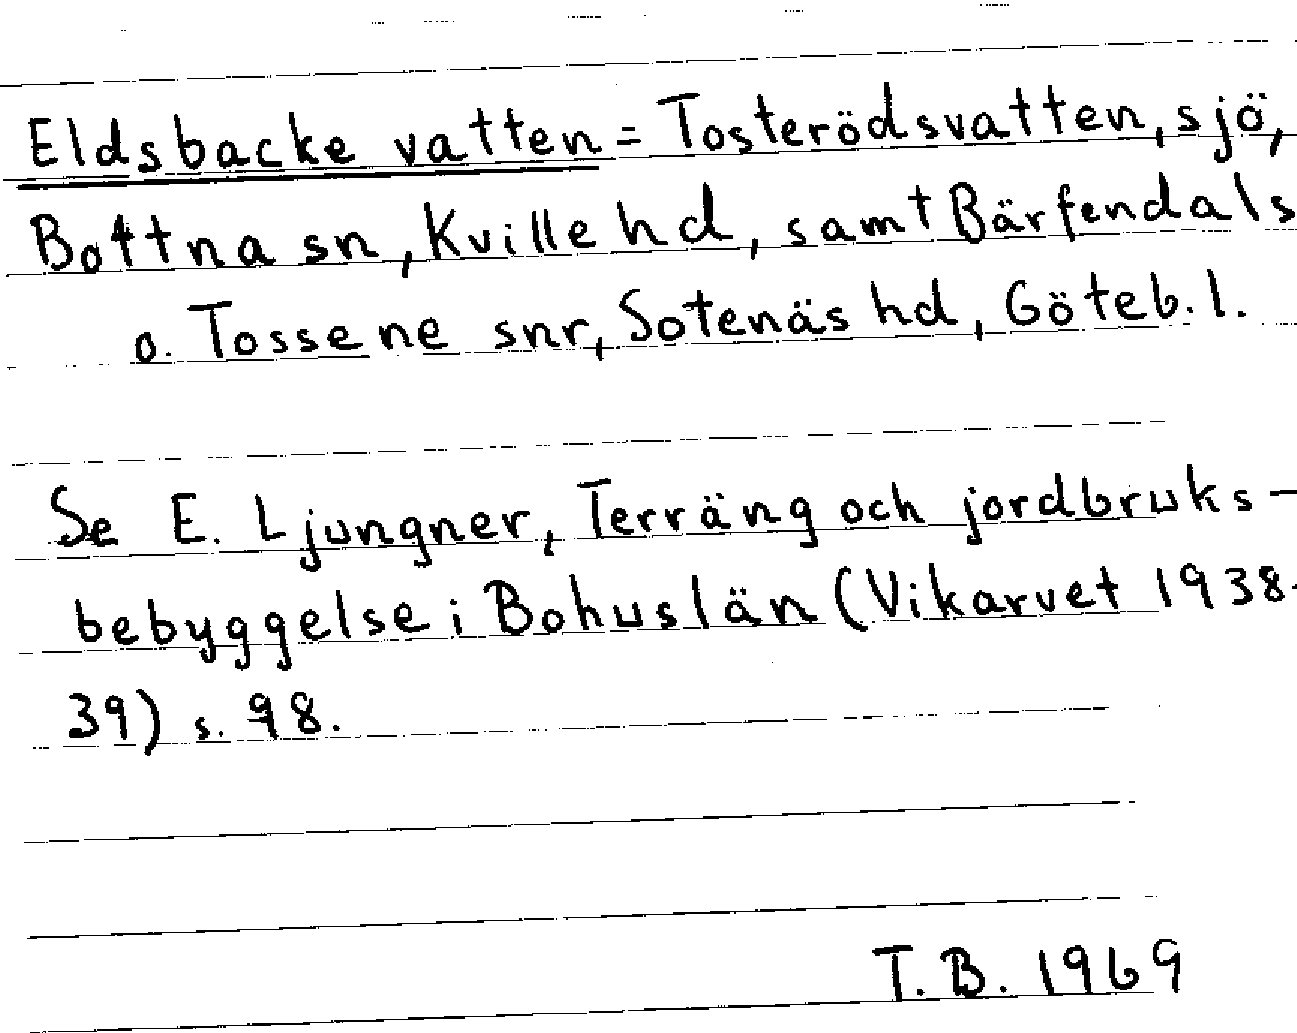 Eldsbacke vatten = Tosterödsvatten, sjö,
Bottna sn, Kville hd, samt Bärfendals
o. Tossene snr, Sotenäs hd, Göteb. l.
Se E. Ljungner, Terräng och jordbruks-
bebyggelse i Bohuslän (Vikarvet 1938-
39) s. 98.
T. B. 1969